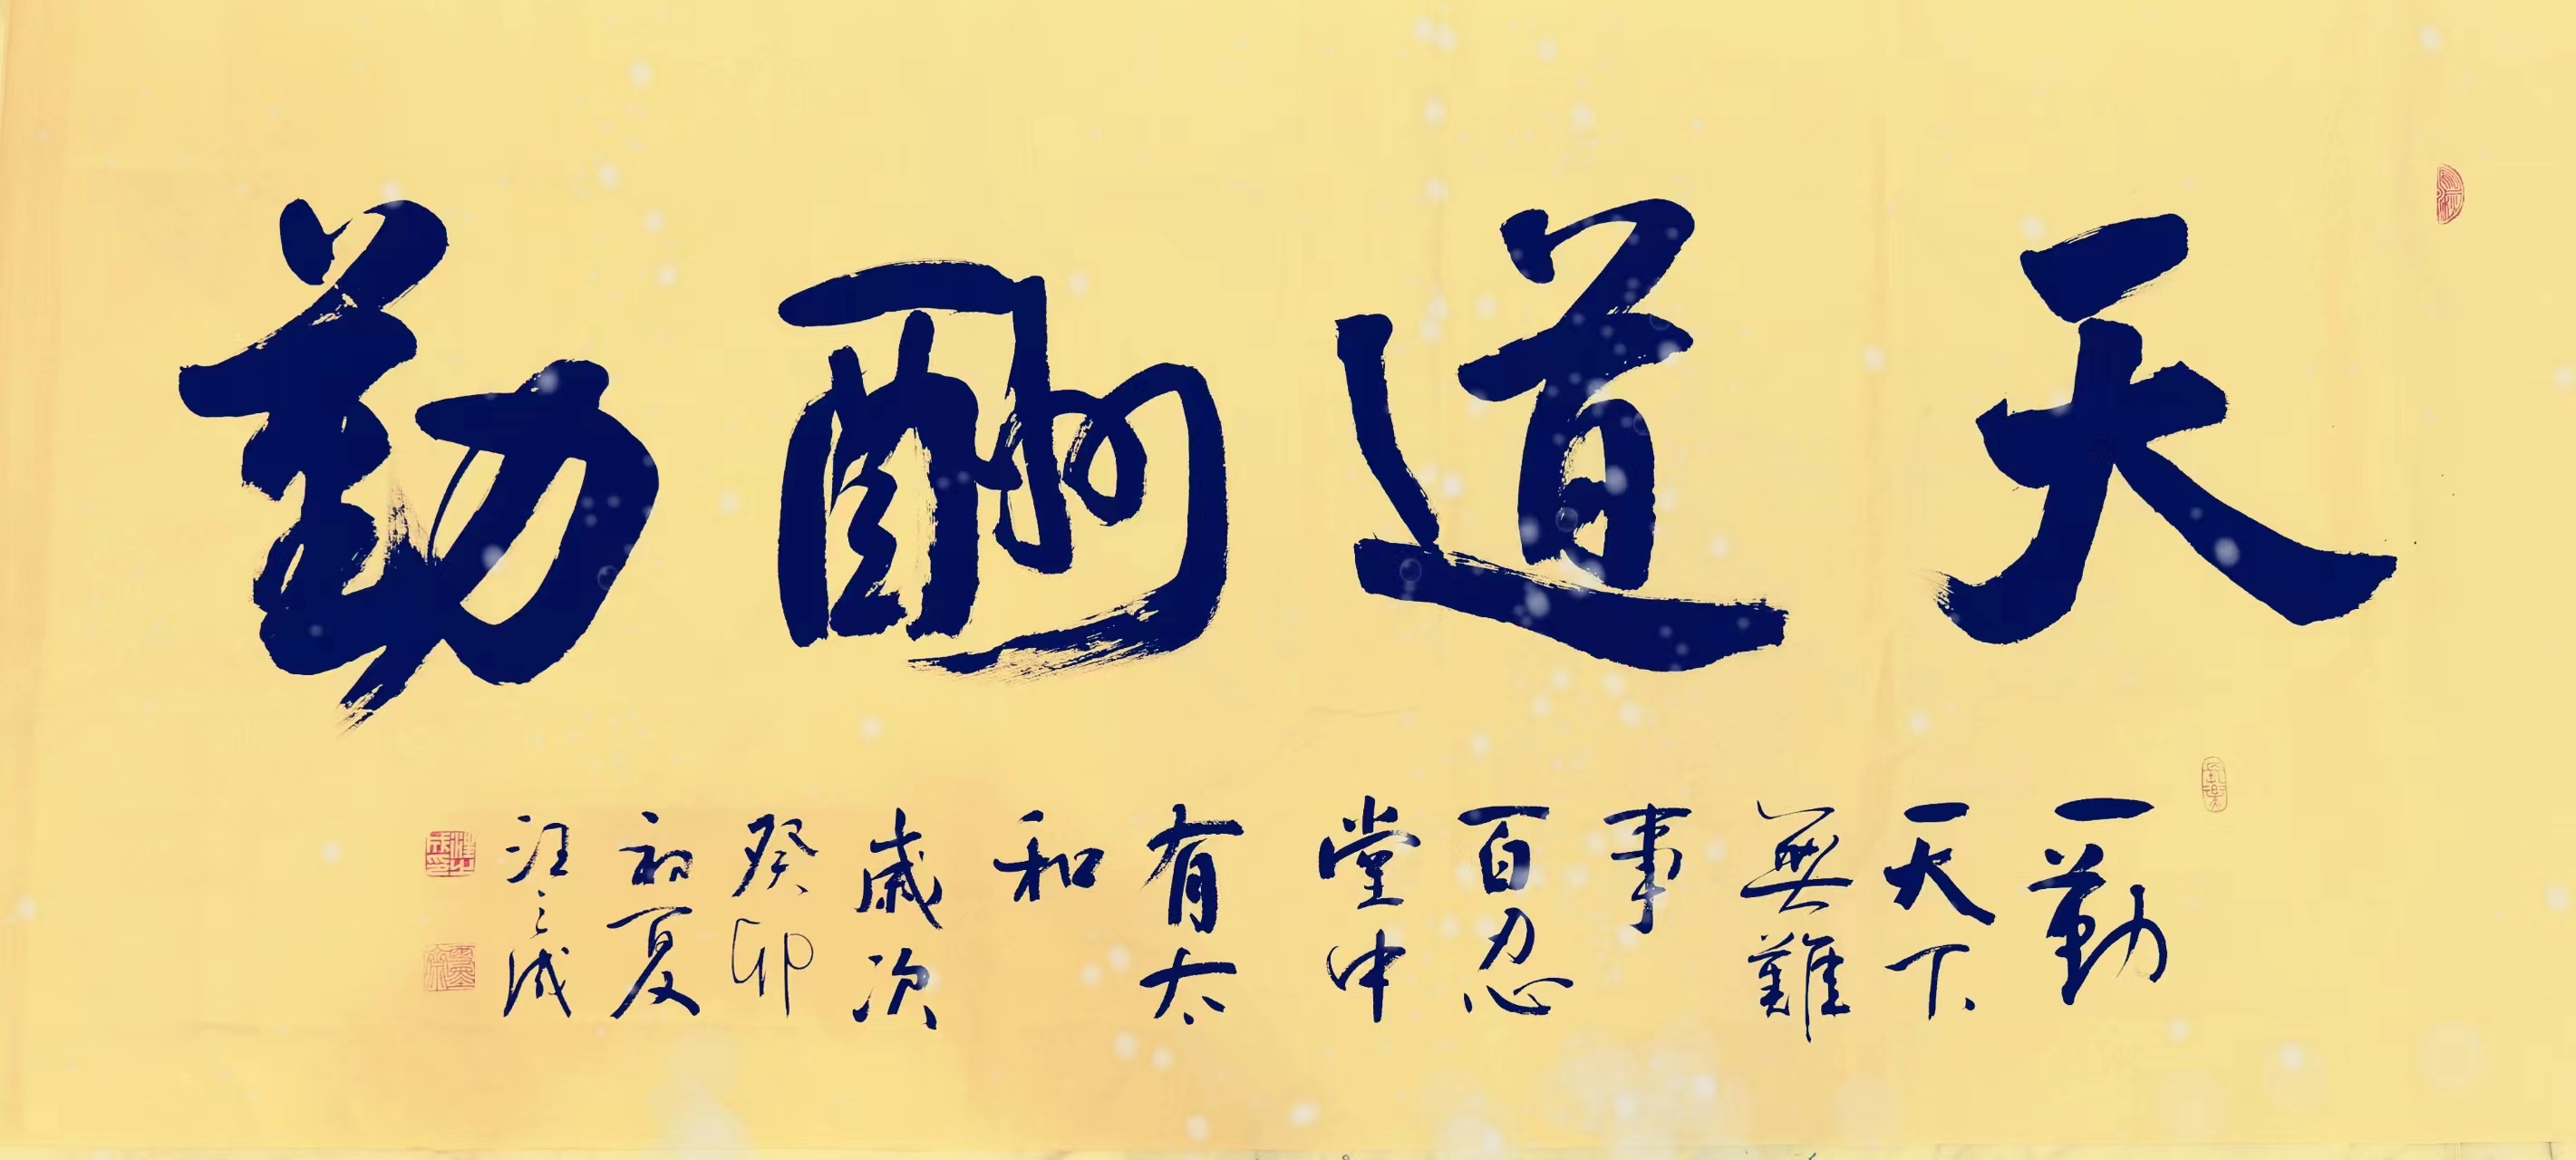 天道酬勤
一勤
天下
無難
事
百忍
堂中
有太
和
歲次
癸卯
初夏
汪之成